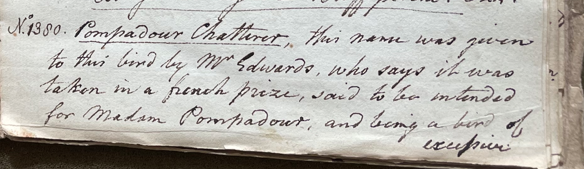 No. 1380. Pompadour Chatterer, this name was given
to this bird by Mr Edwards, who says it was
taken in a french prize, said to be intended
for Madam Pompadour, and being a bird of
excessive